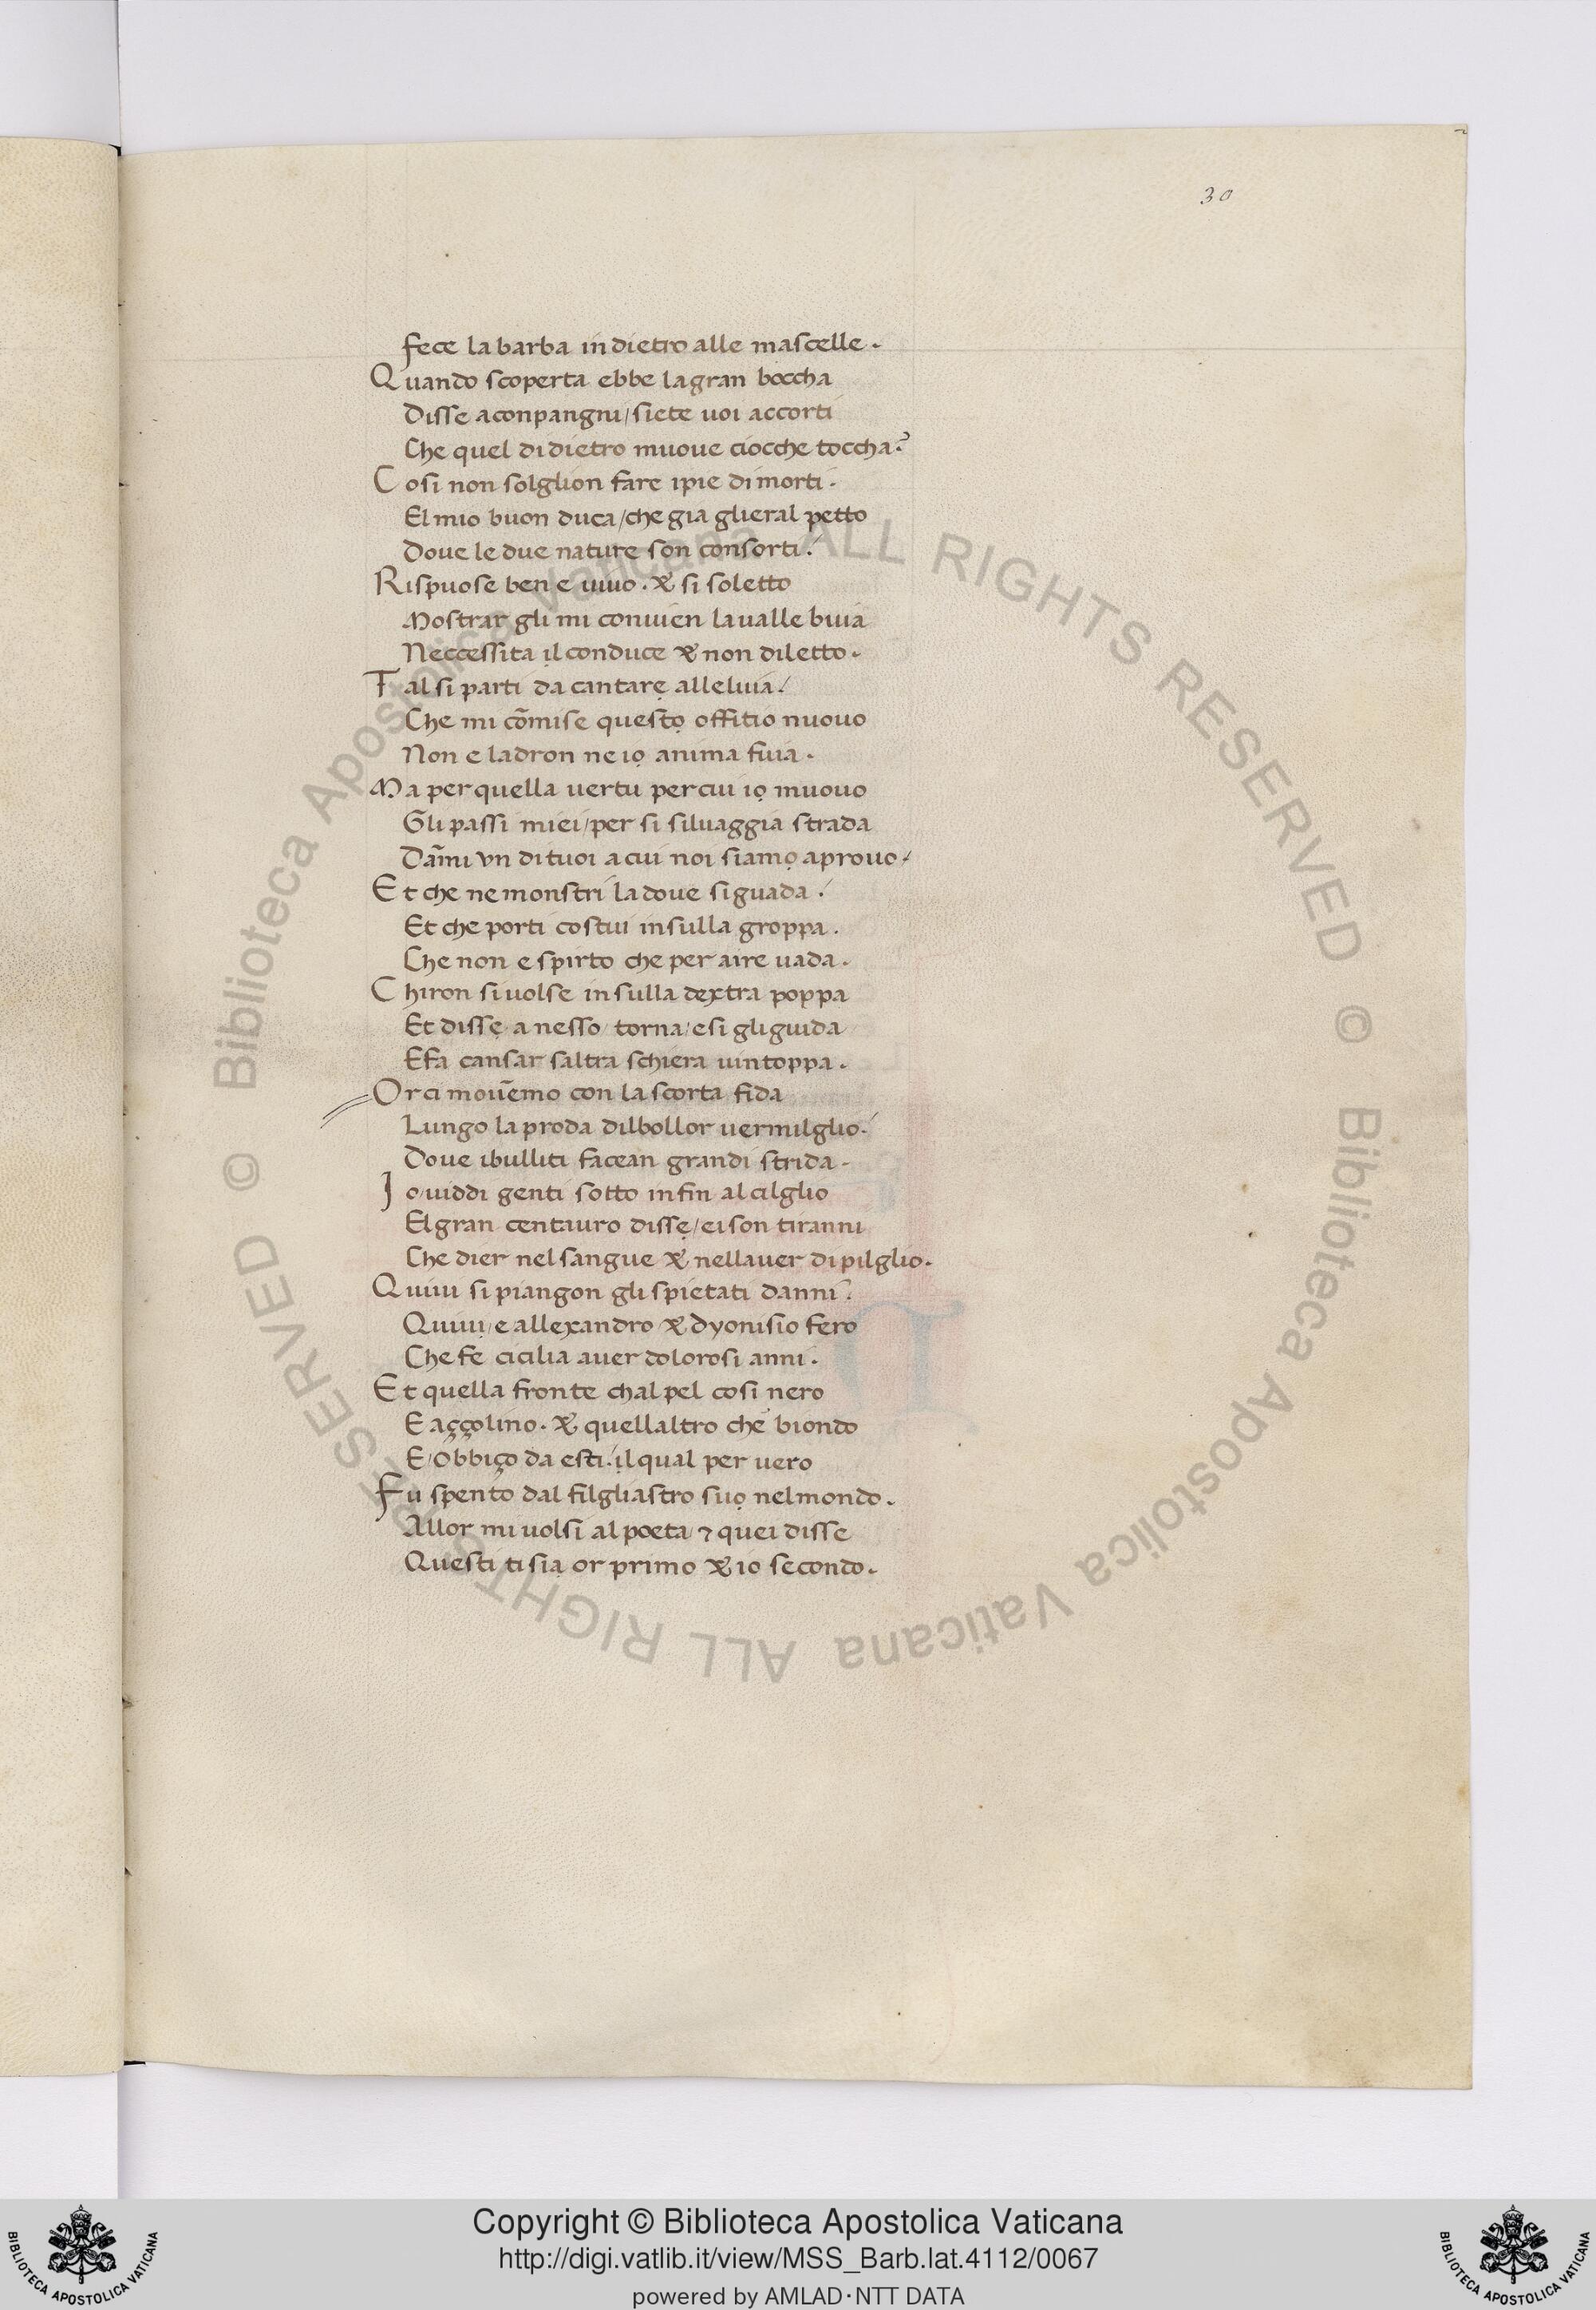 30
Fece la barba in dietro alle mascelle.
Quando scoperta ebbe la gran boccha
Disse aconpangni/siete uoi accorti
Che quel di dietro muoue ciocche toccha?
Cosi non solglion fare ipie di morti.
El mio buon duca/che gia glieral petto
Doue le due nature son consorti.
Rispuose ben e uiuo. & si soletto
Mostrar gli mi conuien la ualle buia
Neccessita il conduce & non diletto.
Tal si parti da cantarẹ alleluia.
Che mi cōmise questọ offitio nuouo
Non e ladron ne iọ anima fuia.
Ma per quella uertu per cui iọ muouo
Gli passi miei/per si siluaggia strada
Dām̄i vn di tuoi a cui noi siamọ aprouo.
Et che ne monstri la doue si guada.
Et che porti costui in sulla groppa.
Che non e spirto che per aire uada.
Chiron si uolse in sulla dextra poppa
Et dissẹ a nesso/torna/e si gli guida
E fa cansar saltra schiera uintoppa.
Or ci mouēmo con la scorta fida
Lungo la proda dilbollor uermilglio.
Doue ibulliti facean grandi strida.
Jo/uiddi genti sotto in fin al cilglio
El gran centauro dissẹ/ei son tiranni
Che dier nel sangue & nellauer di pilglio.
Quiui si piangon gli spietati danni.
Quiuị/e allexandro & dyonisio fero
Che fe cicilia auer dolorosi anni.
Et quella fronte chal pel cosi nero
E aççolino. & quellaltro che biondo
E/Obbiço da esti. ịl qual per uero
Fu spento dal filgliastro suọ nel mondo.
Allor mi uolsi al poeta ⁊ quei disse
Questi ti siạ or primo & io secondo.
© Biblioteca Apostolica Vaticana ALL RIGHTS RESERVED
© Biblioteca Apostolica Vaticana ALL RIGHTS RESERVED
Copyright © Biblioteca Apostolica Vaticana
http://digi.vatlib.it/view/MSS_Barb.lat.4112/0067
powered by AMLAD·NTT DATA
BIBLIOTECA APOSTOLICA VATICANA
BIBLIOTECA APOSTOLICA VATICANA